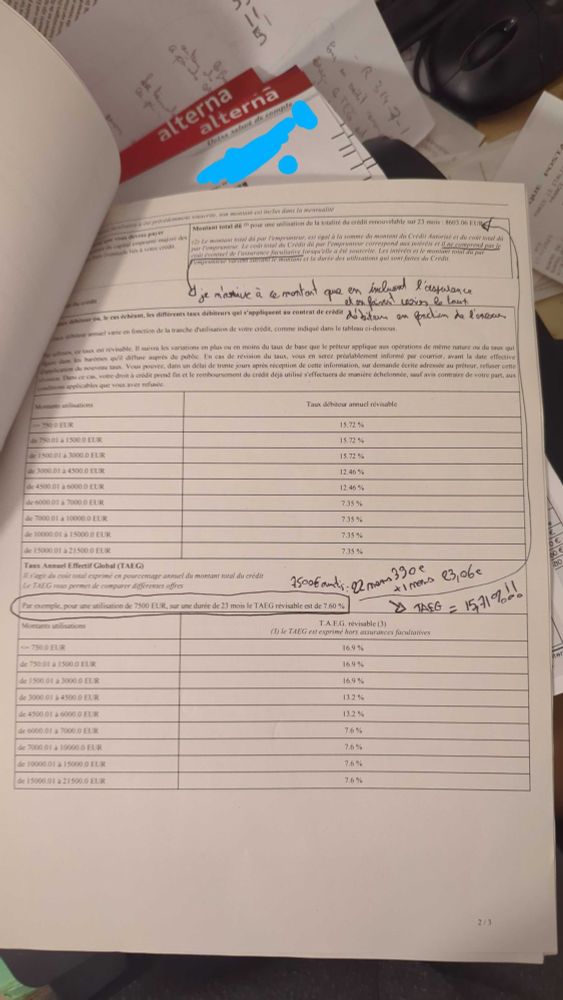 alterna
alterna
Votre relevé de compte
précédemment souscrite, son montant est inclus dans la mensualité
Montant total dû (2) pour une utilisation de la totalité du crédit renouvelable sur 23 mois : 8603.06 EUR
(2) Le montant total dû par l'emprunteur, est égal à la somme du montant du Crédit Autorisé et du coût total dû
par l'emprunteur. Le coût total du Crédit dû par l'emprunteur correspond aux intérêts et il ne comprend pas le
coût éventuel de l'assurance facultative lorsqu'elle a été souscrite. Les intérêts et le montant total dû par
l'emprunteur varient suivant le montant et la durée des utilisations qui sont faites du Crédit.
je n'arrive à ce montant que en incluant l'assurance
et en faisant varier le taux
débiteur en fonction de
du crédit
taux débiteur ou, le cas échéant, les différents taux débiteurs qui s'appliquent au contrat de crédit
débiteur annuel varie en fonction de la tranche d'utilisation de votre crédit, comme indiqué dans le tableau ci-dessous.
ce taux est révisable. Il suivra les variations en plus ou en moins du taux de base que le prêteur applique aux opérations de même nature ou du taux qui
dans les barèmes qu'il diffuse auprès du public. En cas de révision du taux, vous en serez préalablement informé par courrier, avant la date effective
d'application du nouveau taux. Vous pouvez, dans un délai de trente jours après réception de cette information, sur demande écrite adressée au prêteur, refuser cette
révision. Dans ce cas, votre droit à crédit prend fin et le remboursement du crédit déjà utilisé s'effectuera de manière échelonnée, sauf avis contraire de votre part, aux
conditions applicables que vous avez refusée.
Montants utilisations Taux débiteur annuel révisable
<= 750.0 EUR 15.72 %
de 750.01 à 1500.0 EUR 15.72 %
de 1500.01 à 3000.0 EUR 15.72 %
de 3000.01 à 4500.0 EUR 12.46 %
de 4500.01 à 6000.0 EUR 12.46 %
de 6000.01 à 7000.0 EUR 7.35 %
de 7000.01 à 10000.0 EUR 7.35 %
de 10000.01 à 15000.0 EUR 7.35 %
de 15000.01 à 21500.0 EUR 7.35 %
Taux Annuel Effectif Global (TAEG)
Il s'agit du coût total exprimé en pourcentage annuel du montant total du crédit
Le TAEG vous permet de comparer différentes offres
7500€ : 22 mens 390€
+1 mens 23,06€
TAEG = 15,71%!!
Par exemple, pour une utilisation de 7500 EUR, sur une durée de 23 mois le TAEG révisable est de 7.60 %
Montants utilisations T.A.E.G. révisable (3)
(3) le TAEG est exprimé hors assurances facultatives
<= 750.0 EUR 16.9 %
de 750.01 à 1500.0 EUR 16.9 %
de 1500.01 à 3000.0 EUR 16.9 %
de 3000.01 à 4500.0 EUR 13.2 %
de 4500.01 à 6000.0 EUR 13.2 %
de 6000.01 à 7000.0 EUR 7.6 %
de 7000.01 à 10000.0 EUR 7.6 %
de 10000.01 à 15000.0 EUR 7.6 %
de 15000.01 à 21500.0 EUR 7.6 %
2 / 3